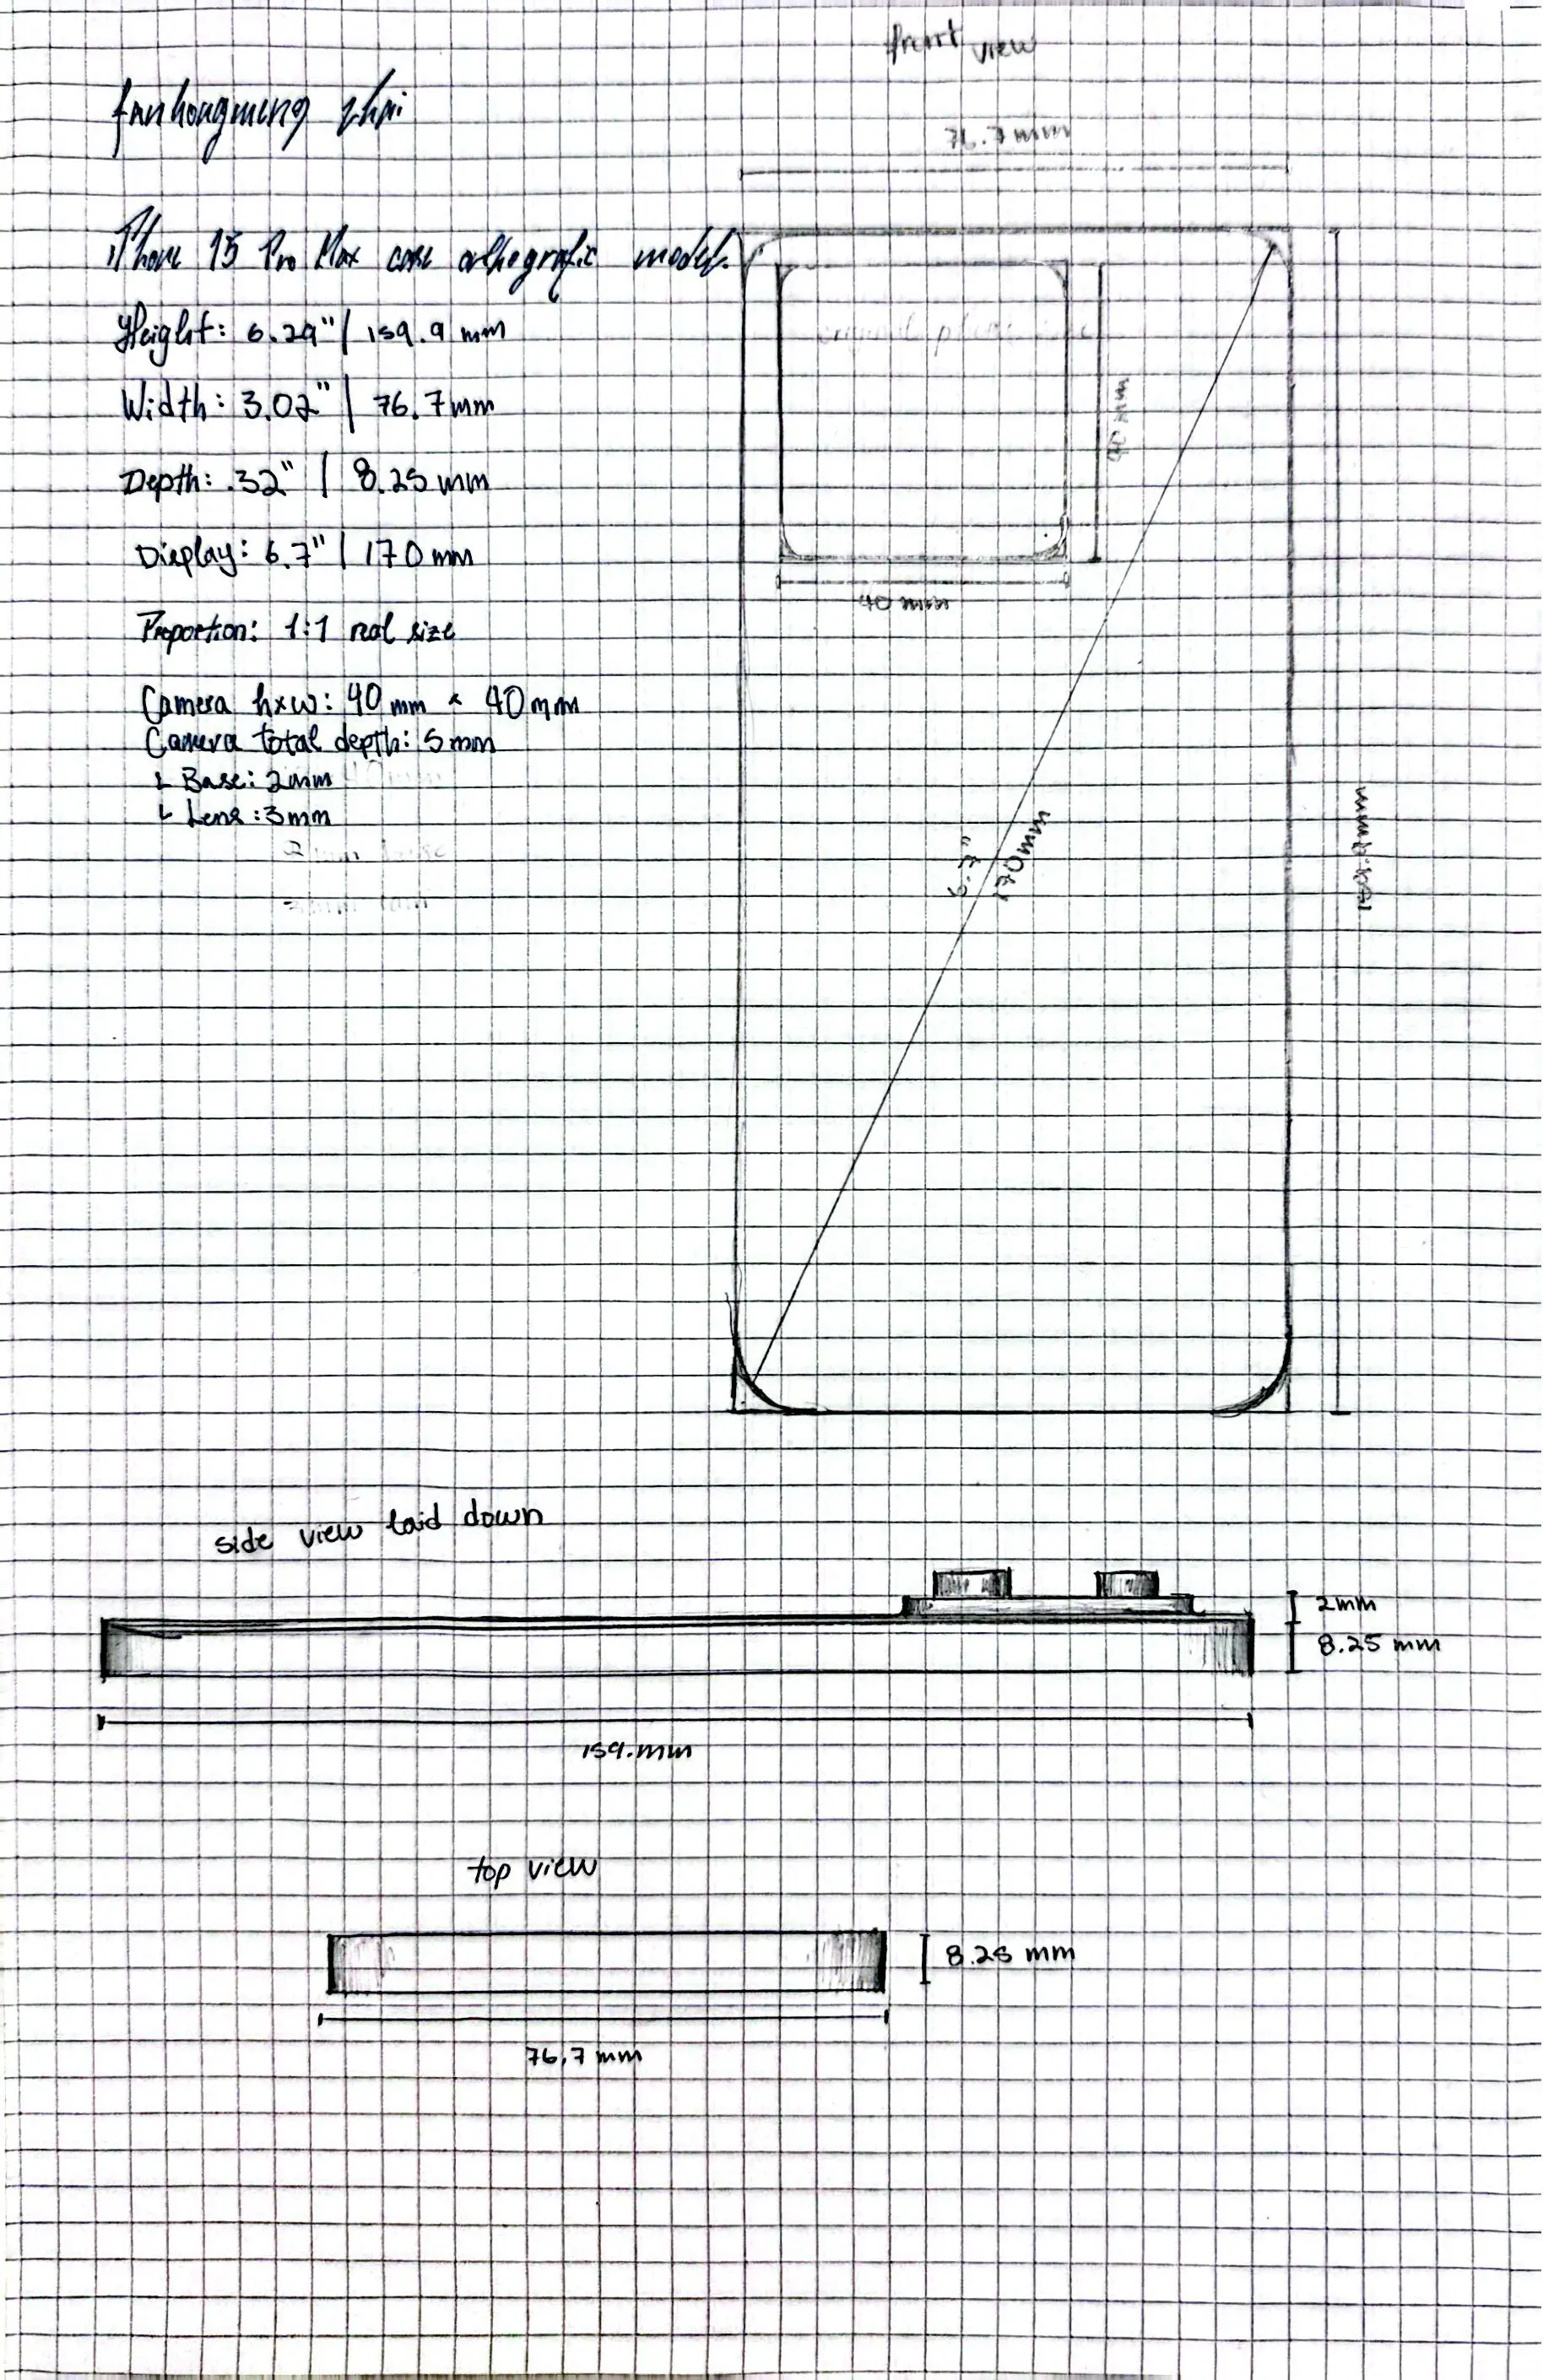 front view
fanhongmeng zhai
76.7 mm
iPhone 15 Pro Max case orthografic model.
Height: 6.29" | 159.9 mm
Width: 3.02" | 76.7mm
Depth: .32" | 8.25 mm
Display: 6.7" | 170 mm
40 mm
40 mm
Proportion: 1:1 real size
Camera h×w: 40 mm × 40 mm
Camera total depth: 5mm
Base: 2mm
Lens: 3mm
6.7"
170mm
159.9mm
side view laid down
2mm
8.25 mm
159.mm
top view
8.25 mm
76.7 mm